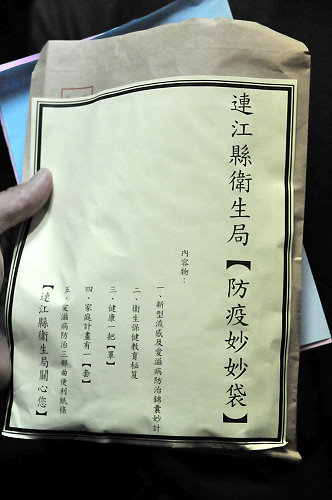 連江縣衛生局【防疫妙妙袋】
內容物：
一、新型流感及愛滋病防治錦囊妙計
二、衛生保健教育秘笈
三、健康一把【罩】
四、家庭計畫有一【套】
五、愛滋病防治三部曲便利紙條
【連江縣衛生局關心您】